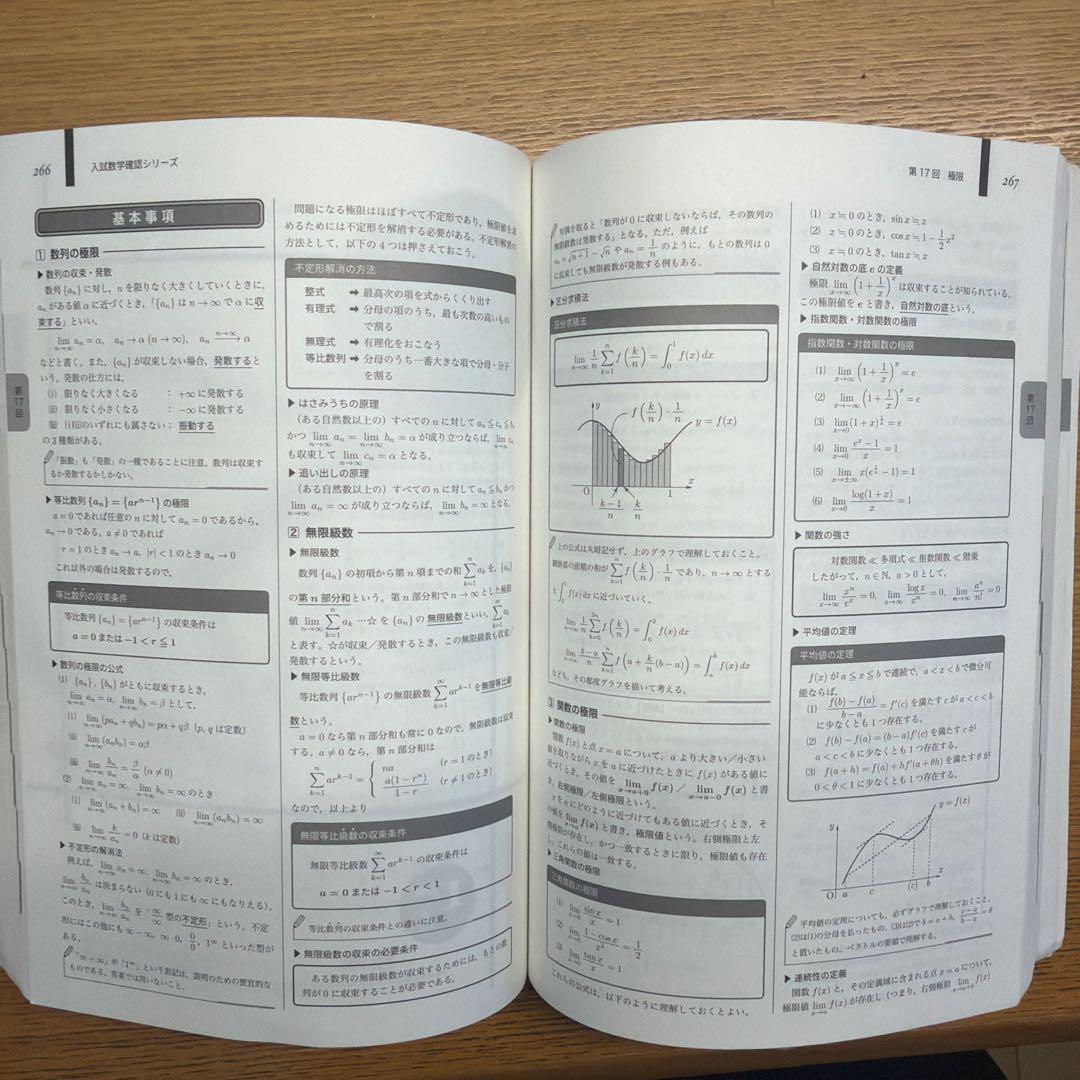 266
入試数学確認シリーズ
基本事項
1 数列の極限
▶数列の収束・発散
数列{aₙ}に対し,nを限りなく大きくしていくときに,
aₙがある値αに近づくとき,「{aₙ}はn→∞でαに収
束する」といい,
lim[n→∞] aₙ=α, aₙ→α (n→∞), aₙ —n→∞→ α
などと書く。また,{aₙ}が収束しない場合,発散すると
いう。発散の仕方には,
(i) 限りなく大きくなる :+∞に発散する
(ii) 限りなく小さくなる :-∞に発散する
(iii) (i)(ii)のいずれにも属さない:振動する
の3種類がある。
「振動」も「発散」の一種であることに注意。数列は収束す
るか発散するかしかない。
▶等比数列{aₙ}={arⁿ⁻¹}の極限
a=0であれば任意のnに対してaₙ=0であるから,
aₙ→0である。a≠0であれば
r=1のときaₙ→a, |r|<1のときaₙ→0
これ以外の場合は発散するので,
等比数列の収束条件
等比数列{aₙ}={arⁿ⁻¹}の収束条件は
a=0 または -1<r≦1
▶数列の極限の公式
(1) {aₙ}, {bₙ}がともに収束するとき,
lim[n→∞] aₙ=α, lim[n→∞] bₙ=βとして,
(i) lim[n→∞](paₙ+qbₙ)=pα+qβ (p, qは定数)
(ii) lim[n→∞](aₙbₙ)=αβ
(iii) lim[n→∞] bₙ/aₙ=β/α (α≠0)
(2) lim[n→∞] aₙ=∞, lim[n→∞] bₙ=∞のとき
(i) lim[n→∞](aₙ+bₙ)=∞ (ii) lim[n→∞](aₙbₙ)=∞
(iii) lim[n→∞] k/aₙ=0 (kは定数)
▶不定形の解消法
例えば, lim[n→∞] aₙ=∞, lim[n→∞] bₙ=∞のとき,
lim[n→∞] bₙ/aₙ は決まらない (0にも1にも∞にもなりえる)。
このとき, lim[n→∞] bₙ/aₙ を「∞/∞型の不定形」という。不定
形にはこの他にも∞-∞, ∞·0, 0/0, 1^∞といった型が
ある。
「∞-∞」や「1^∞」という表記は,説明のための便宜的な
ものである。答案では用いないこと。
問題になる極限はほぼすべて不定形であり,極限値を求
めるためには不定形を解消する必要がある。不定形解消の
方法として,以下の4つは押さえておこう。
不定形解消の方法
整式 ➡ 最高次の項を式からくくり出す
有理式 ➡ 分母の項のうち,最も次数の高いもの
で割る
無理式 ➡ 有理化をおこなう
等比数列 ➡ 分母のうち一番大きな項で分母・分子
を割る
▶はさみうちの原理
(ある自然数以上の) すべてのnに対してaₙ≦cₙ≦bₙ
かつ lim[n→∞] aₙ= lim[n→∞] bₙ=αが成り立つならば, lim[n→∞] cₙ
も収束して lim[n→∞] cₙ=αとなる。
▶追い出しの原理
(ある自然数以上の) すべてのnに対してaₙ≦bₙかつ
lim[n→∞] aₙ=∞が成り立つならば, lim[n→∞] bₙ=∞となる。
2 無限級数
▶無限級数
数列{aₙ}の初項から第n項までの和 Σ[k=1→n] aₖを, {aₙ}
の第n部分和という。第n部分和でn→∞とした極限
値 lim[n→∞] Σ[k=1→n] aₖ …☆を{aₙ}の無限級数といい, Σ[k=1→∞] aₖ
と表す。☆が収束/発散するとき,この無限級数も収束/
発散するという。
▶無限等比級数
等比数列{arⁿ⁻¹}の無限級数 Σ[k=1→∞] arᵏ⁻¹を無限等比級
数という。
a=0なら第n部分和も常に0なので,無限級数は収束
する。a≠0なら,第n部分和は
Σ[k=1→n] arᵏ⁻¹ = { na (r=1のとき)
a(1-rⁿ)/(1-r) (r≠1のとき)
なので,以上より
無限等比級数の収束条件
無限等比級数 Σ[k=1→∞] arᵏ⁻¹の収束条件は
a=0 または -1<r<1
等比数列の収束条件との違いに注意。
▶無限級数の収束の必要条件
ある数列の無限級数が収束するためには,もとの数
列が0に収束することが必要である。
第17回
第17回 極限
267
対偶を取ると「数列が0に収束しないならば,その数列の
無限級数は発散する」となる。ただ,例えば
aₙ=√(n+1)-√nやaₙ=1/nのように,もとの数列は0
に収束しても無限級数が発散する例もある。
▶区分求積法
区分求積法
lim[n→∞] 1/n Σ[k=1→n] f(k/n)=∫[0→1] f(x)dx
y
f(k/n)·1/n
y=f(x)
O
1
x
(k-1)/n
k/n
上の公式は丸暗記せず,上のグラフで理解しておくこと。
網掛部の面積の和が Σ[k=1→n] f(k/n)·1/nであり, n→∞とする
と ∫[0→1] f(x)dxに近づいていく。
lim[n→∞] 1/n Σ[k=1→2n] f(k/n)=∫[0→2] f(x)dx
lim[n→∞] (b-a)/n Σ[k=1→n] f(a+k/n(b-a))=∫[a→b] f(x)dx
なども,その都度グラフを描いて考える。
3 関数の極限
▶関数の極限
関数f(x)と点x=aについて, aより大きい/小さい
値を取りながらxをaに近づけたときにf(x)がある値に
近づくとき,その値を lim[x→a+0] f(x) / lim[x→a-0] f(x)と書
き,右側極限/左側極限という。
xをaにどのように近づけてもある値に近づくとき,そ
の値を lim[x→a] f(x)と書き,極限値という。右側極限と左
側極限が存在し,かつ一致するときに限り,極限値も存在
し,これらの値は一致する。
▶三角関数の極限
三角関数の極限
(1) lim[x→0] sin x/x=1
(2) lim[x→0] (1-cos x)/x²=1/2
(3) lim[x→0] tan x/x=1
これらの公式は,以下のように理解しておくとよい。
(1) x≒0のとき, sin x≒x
(2) x≒0のとき, cos x≒1-1/2x²
(3) x≒0のとき, tan x≒x
▶自然対数の底eの定義
極限 lim[x→∞](1+1/x)ˣは収束することが知られている。
この極限値をeと書き,自然対数の底という。
▶指数関数・対数関数の極限
指数関数・対数関数の極限
(1) lim[x→∞](1+1/x)ˣ=e
(2) lim[x→-∞](1+1/x)ˣ=e
(3) lim[x→0](1+x)^(1/x)=e
(4) lim[x→0] (eˣ-1)/x=1
(5) lim[x→±∞] x(e^(1/x)-1)=1
(6) lim[x→0] log(1+x)/x=1
▶関数の強さ
対数関数≪多項式≪指数関数≪階乗
したがって, n∈ℕ, a>0として,
lim[x→∞] xⁿ/eˣ=0, lim[x→∞] log x/xⁿ=0, lim[n→∞] aⁿ/n!=0
▶平均値の定理
平均値の定理
f(x)がa≦x≦bで連続で, a<x<bで微分可
能ならば,
(1) (f(b)-f(a))/(b-a)=f'(c)を満たすcがa<c<b
に少なくとも1つ存在する。
(2) f(b)-f(a)=(b-a)f'(c)を満たすcが
a<c<bに少なくとも1つ存在する。
(3) f(a+h)=f(a)+hf'(a+θh)を満たすθが
0<θ<1に少なくとも1つ存在する。
y
y=f(x)
O
a
c
(c)
b
x
平均値の定理についても,必ずグラフで理解しておくこと。
(2)は(1)の分母を払ったもの, (3)は(2)でb=a+h, (c-a)/(b-a)=θ
と置いたもの。ベクトルの要領で理解する。
▶連続性の定義
関数f(x)と,その定義域に含まれる点x=aについて,
極限値 lim[x→a] f(x)が存在し (つまり,右側極限 lim[x→a+0] f(x)
第17回